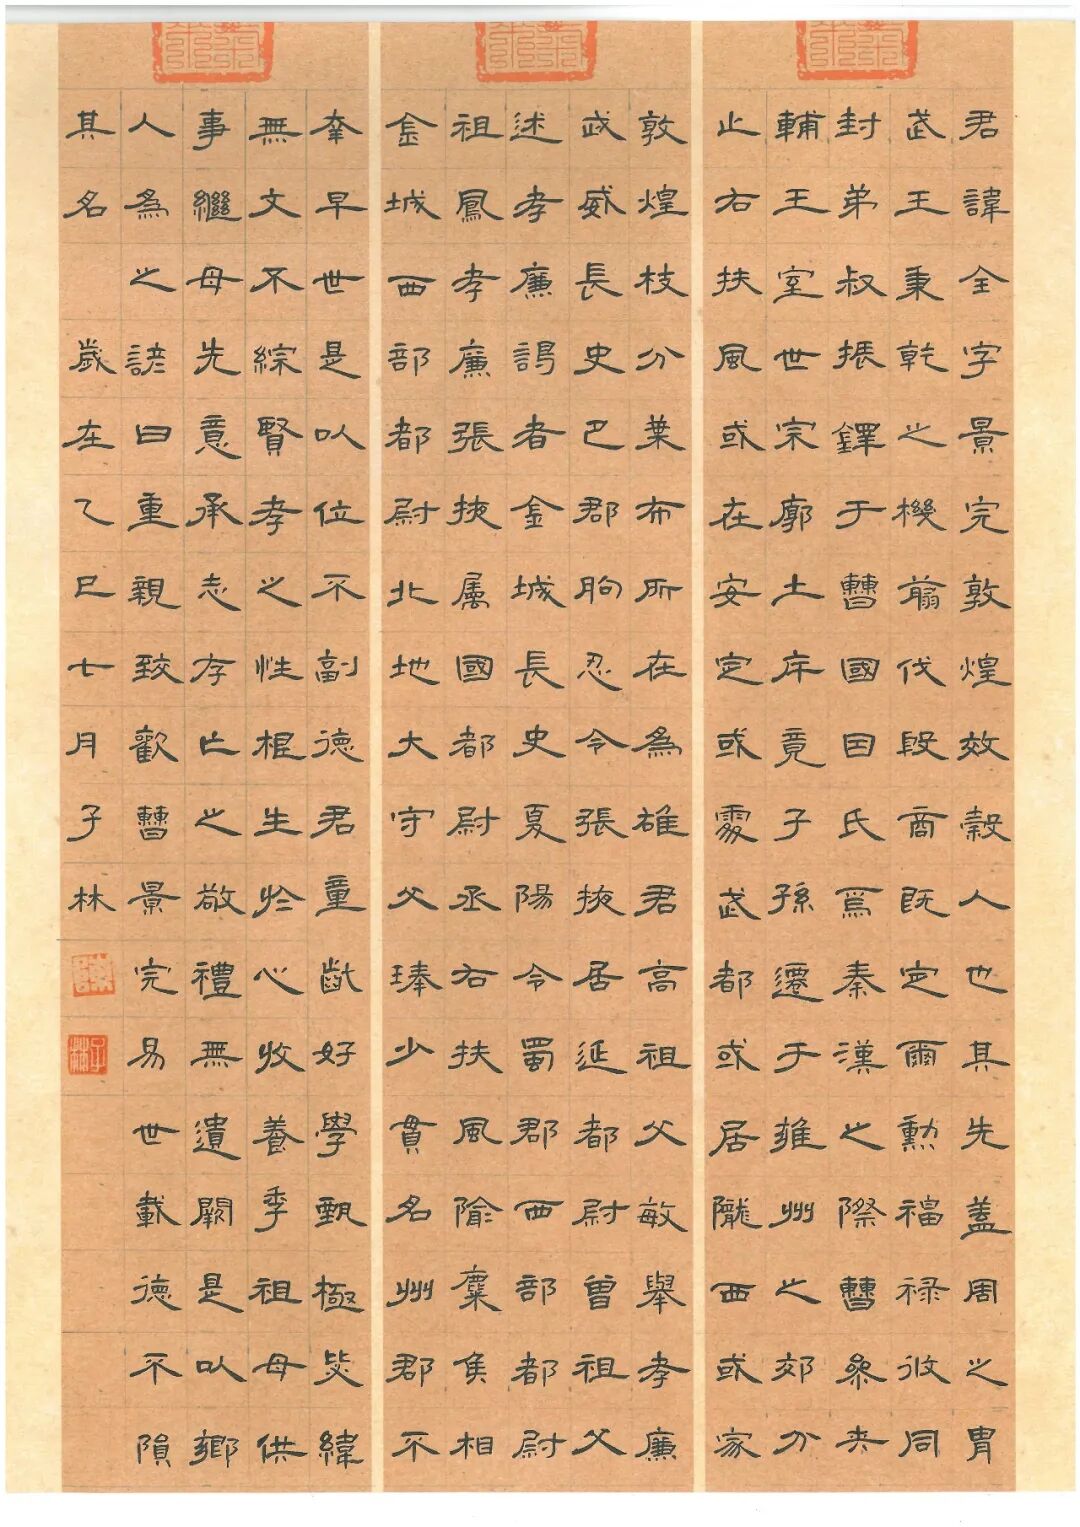 君諱全字景完敦煌效穀人也其先蓋周之胄
武王秉乾之機翦伐殷商既定爾勳福祿攸同
封弟叔振鐸于曹國因氏焉秦漢之際曹參夾
輔王室世宗廓土斥竟子孫遷于雍州之郊分
止右扶風或在安定或處武都或居隴西或家
敦煌枝分葉布所在為雄君高祖父敏舉孝廉
武威長史巴郡朐忍令張掖居延都尉曾祖父
述孝廉謁者金城長史夏陽令蜀郡西部都尉
祖鳳孝廉張掖属國都尉丞右扶風隃麋侯相
金城西部都尉北地大守父琫少貫名州郡不
幸早世是以位不副德君童齔好學甄極毖緯
無文不綜賢孝之性根生於心收養季祖母供
事繼母先意承志存亡之敬禮無遺闕是以鄉
人為之諺曰重親致歡曹景完易世載德不隕
其名 歲在乙巳七月子林